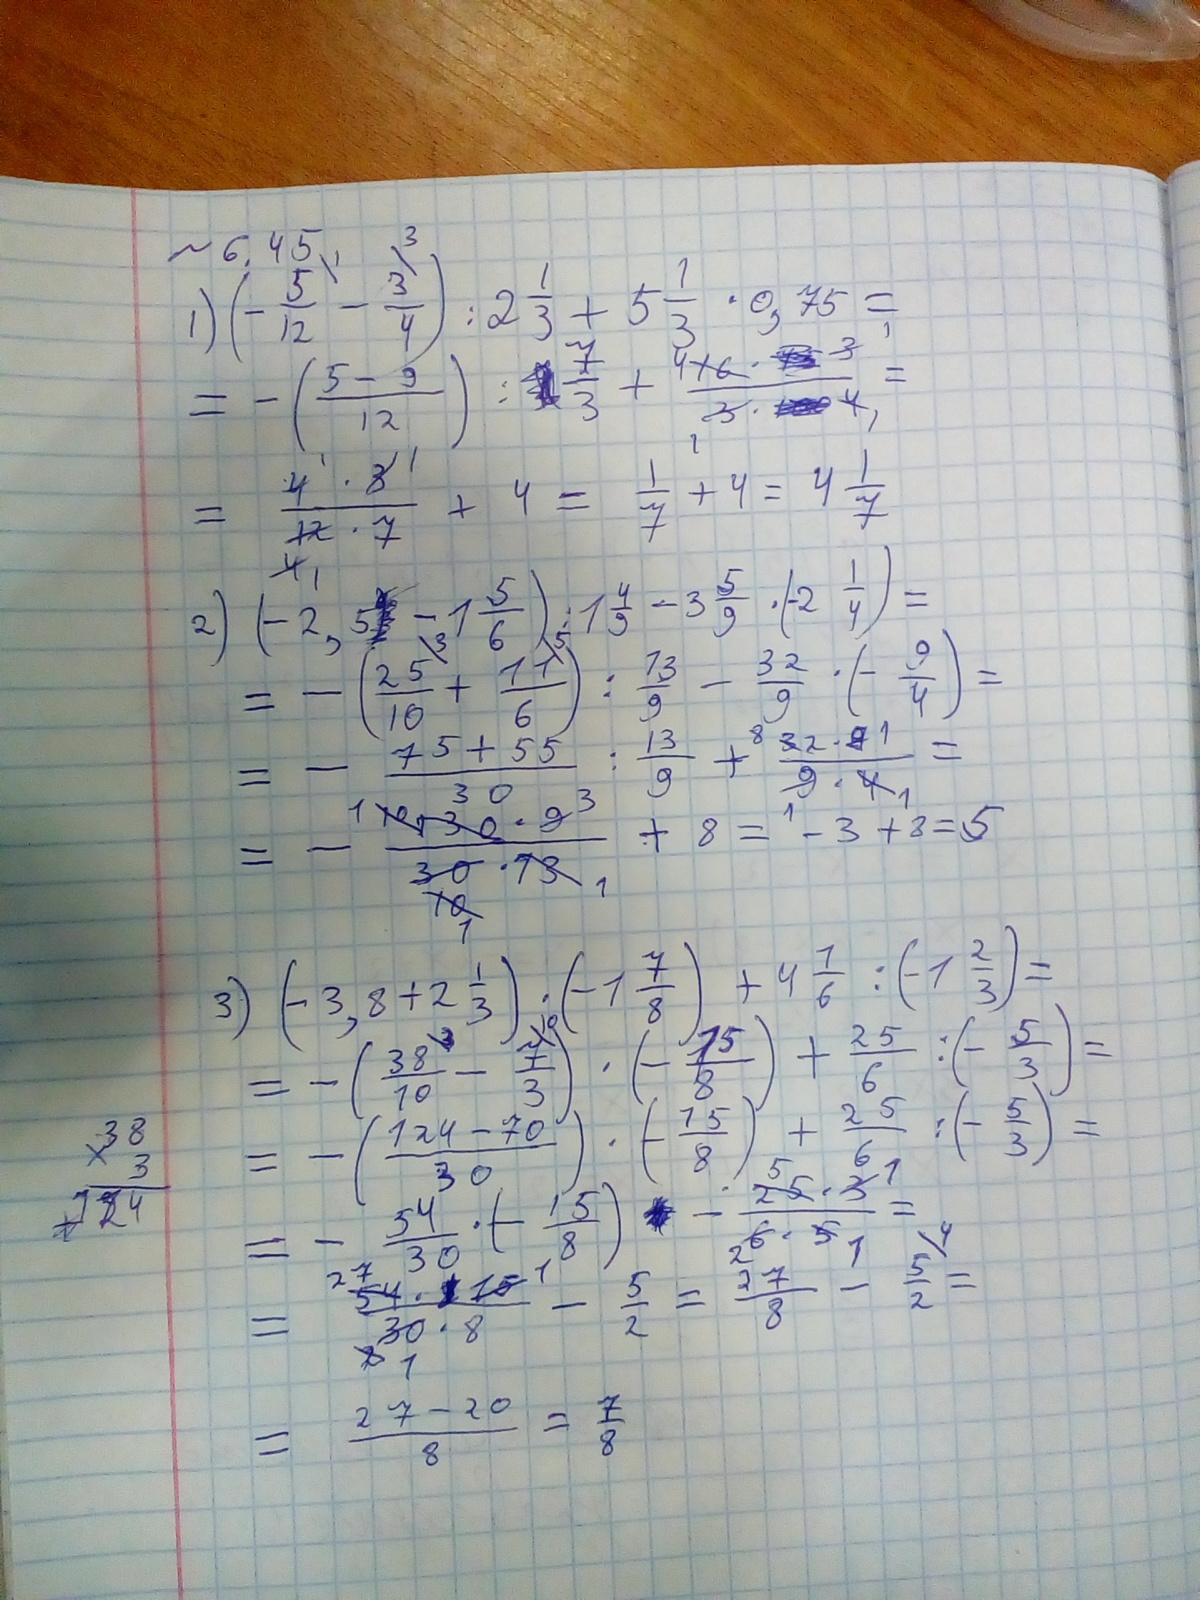 ~ 6.45
1) (- 5/12 - 3/4) : 2 1/3 + 5 1/3 · 0,75 =
= - ((5 - 9)/12) : 7/3 + (16 · 3)/(3 · 4) =
= (4 · 3)/(12 · 7) + 4 = 1/7 + 4 = 4 1/7
2) (- 2,5 - 1 5/6) : 1 4/9 - 3 5/9 · (- 2 1/4) =
= - (25/10 + 11/6) : 13/9 - 32/9 · (- 9/4) =
= - (75 + 55)/30 : 13/9 + (32 · 9)/(9 · 4) =
= - (130 · 9)/(30 · 13) + 8 = - 3 + 8 = 5
3) (- 3,8 + 2 1/3) · (- 1 7/8) + 4 1/6 : (- 1 2/3) =
= - (38/10 - 7/3) · (- 15/8) + 25/6 : (- 5/3) =
= - ((124 - 70)/30) · (- 15/8) + 25/6 : (- 5/3) =
38
× 3
124
= - 54/30 · (- 15/8) - (25 · 3)/(6 · 5) =
= (54 · 15)/(30 · 8) - 5/2 = 27/8 - 5/2 =
= (27 - 20)/8 = 7/8